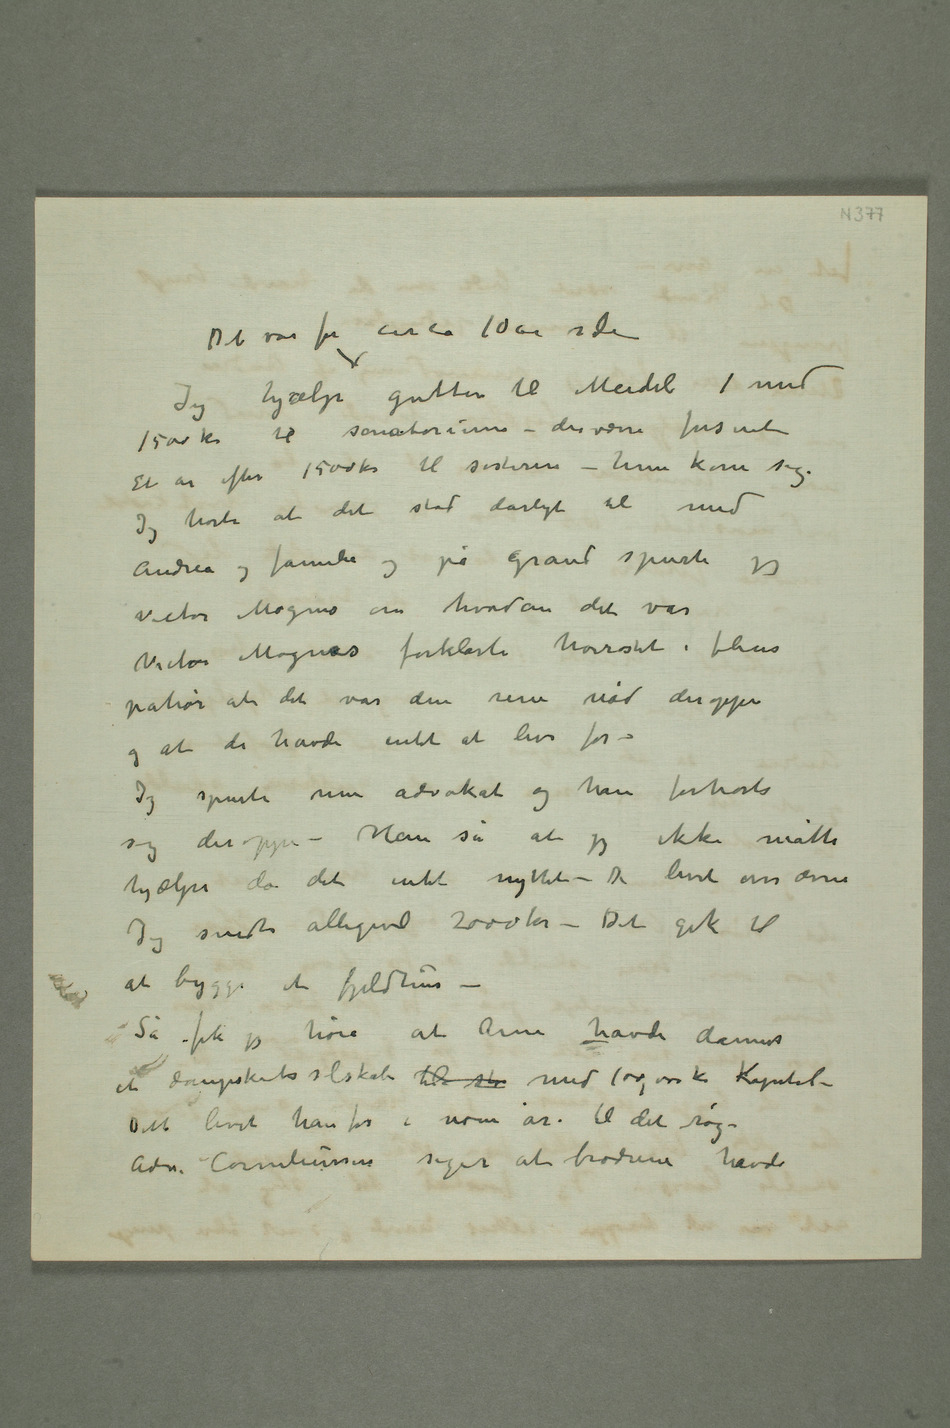 N 377
Det var for circa 10 år siden
Jeg hjælpe gutten til Meidel 1 med
1500 kr til sanatorium – derværre forsent
Et år efter 1500 kr til søsteren – hun kom sig.
Jeg hørte at det stod dårligt til med
Andrea og familie og på Grand spurte jeg
Victor Mogens om hvordan det var
Victor Mogens forklarte i flères
at det var den rene nød deroppe
og at de havde intet at leve for –
Jeg spurte min advokat og han forhørte
sig deroppe – Han sa at jeg ikke måtte
hjælpe da det intet nyttet – De levet over ævne
Jeg sendte alligevel 2000 kr – Det gik til
at bygge et fjeldhus –
Så fik jeg høre at Arne havde dannet
et dampskibsselskab til med 100,000 kr Kapital –
Dett levet han for i noen år. til det røg –
Adv. Corneliussen siger at brødrene havde